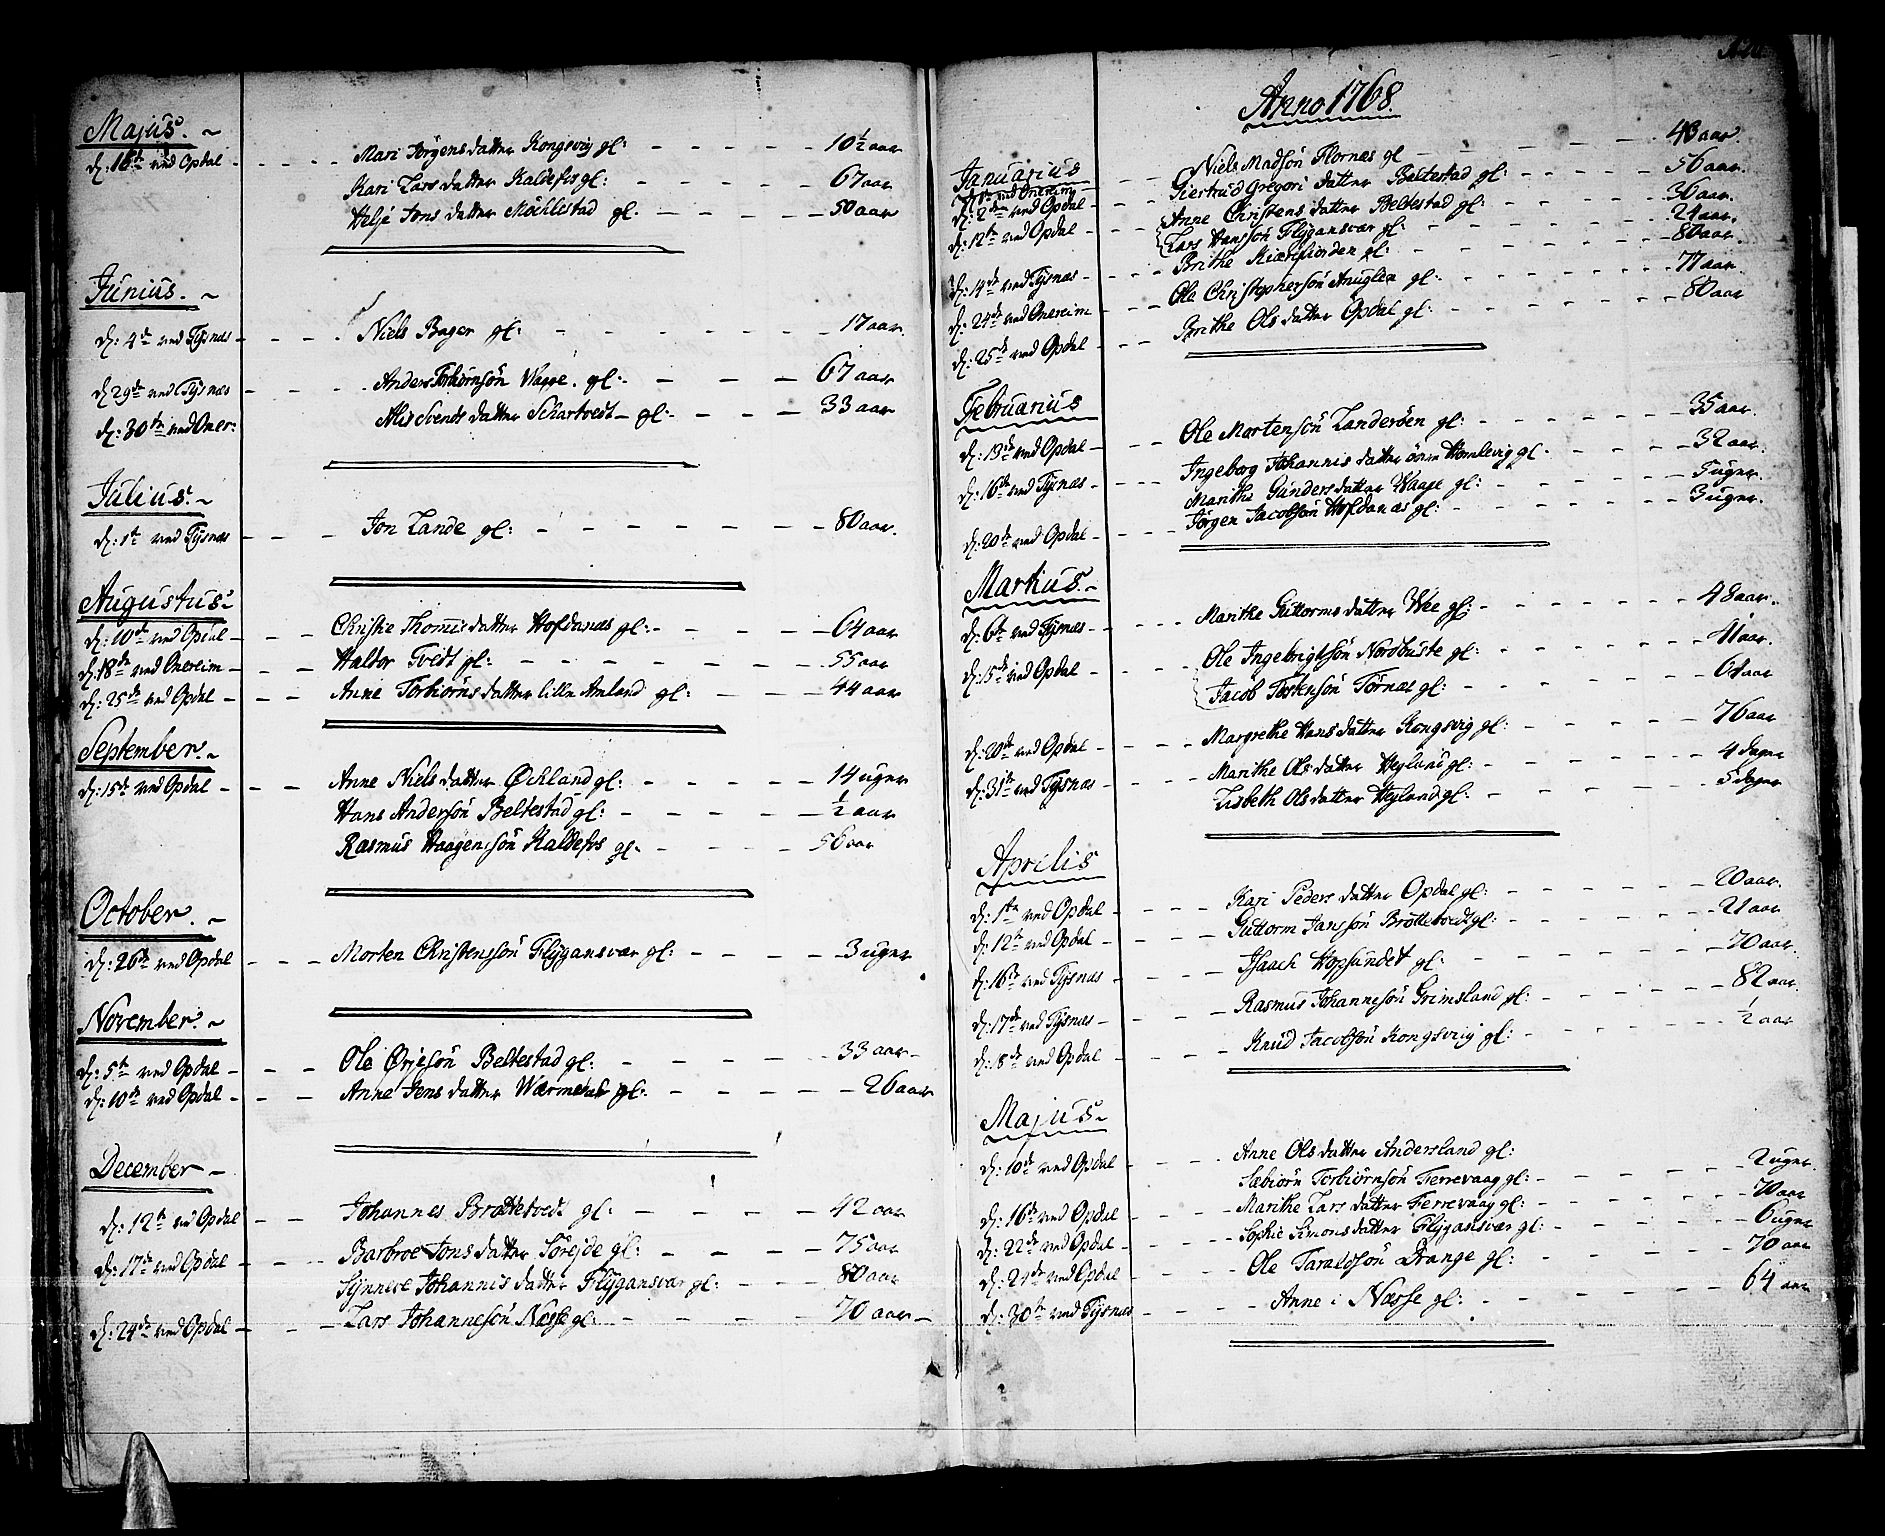 Majus. ~
d: 16de ved Opdal - - - - - Mari Jørgensdatter Kongsvig gl: - - - - - 10½ aar
Kari Larsdatter Kaldefos gl: - - - - - 67 aar
Helje Jonsdatter Möchlestad gl: - - - - - 50 aar
Junius. ~
d: 4de ved Tÿsnæs - - - - Niels Bager gl: - - - - - 17 aar.
d 29de ved Tÿsnæs - - - - Anders Torbiørnsøn Wagge. gl: - - - 67 aar
d: 30te ved Oner: Alis Svendsdatter Schartvedt - gl: - - - 33 aar
Julius. ~
d: 1te ved Tÿsnæs - - - Jon Lande gl: - - - - - - 80 aar.
Augustus. ~
d: 10de ved Opdal - - - Christie Thomisdatter Hofdanæs gl: - - - - 64 aar
d: 18de ved Onereim - - - Haldor Tvedt gl: - - - - - - - 55 aar
d: 25de ved Opdal - - - Anne Torbiørnsdatter lille Amland gl: - - - 44 aar
September. ~
d: 15de ved Opdal - - - Anne Nielsdatter Øchland gl: - - - - 14 uger
Hans Andersøn Beltestad gl: - - - - - ½ aar
Rasmus Haagensøn Kaldefos gl: - - - - 56 aar
October. ~
d: 26de ved Opdal - - - Morten Christenssøn Flÿgansvær gl: - - - - 3 uger
November. ~
d: 5te ved Opdal - - - Ole Ørjesøn Beltestad gl: - - - - - 33 aar -
d: 10de ved Opdal - - - Anne Jensdatter gl: - - - - - 26 aar
December ~
d: 12te ved Opdal - - Johannes Brottetvedt gl: - - - - 42 aar
d: 17de ved Opdal - - - Barbroe Jonsdatter Sørejde gl: - - - - 75 aar
Sÿnneve Johannisdatter Flÿgansvær gl: - - - 80 aar
d: 24de ved Opdal - - - Lars Johannesøn Næsse gl: - - - - - 70 aar -
Anno 1768.
Januarius
ved Onereim - - Niels Madsøn Flornæs gl - - - - - - - 43 aar.
d: 2den ved Opdal - - - Giertrud Gregoridatter Beltestad gl: - - - - - 56 aar.
d: 12te ved Opdal - - - Anne Christensdatter Beltestad gl: - - - - - 36 aar.
Lars Hanssøn Flÿgansvær gl: - - - - - - 24 aar.
d: 14de ved Tÿsnæs - - - - Brithe Kiærefiorden gl: - - - - - - 80 aar.
d: 24de ved Onereim - - - Ole Christophersøn Anuglen gl: - - - - - - 77 aar.
d: 25de ved Opdal - - - Brithe Olsdatter Opdal gl: - - - - - - 80 aar
Februarius
d: 13de ved Opdal - - - Ole Mortensøn Landerøen gl: - - - - - - 35 aar.
d: 16de ved Tÿsnæs - - - - Ingeborg Johannisdatter Homlevig gl - - - - 32 aar.
Marithe Gundersdatter Waage gl: - - - - - - 5 uger.
d: 20de ved Opdal - - - - Jørgen Jacobsøn Hofdanæs gl: - - - - - - 3 uger.
Martius. ~
d: 6te ved Tÿsnæs - - - - - Marithe Guttormsdatter Wee gl: - - - - - - 48 aar.
d: 15de ved Opdal - - - - - Ole Ingebrigtsøn Nordbuste gl: - - - - - - 41 aar.
Jacob Tostensøn Tornæs gl: - - - - - - 64 aar
d: 20de ved Opdal - - - - Margrethe Hansdatter Kongsvig gl: - - - - - 76 aar
d: 31te ved Tÿsnæs - - - - Marithe Olsdatter Heÿland gl: - - - - - - 4 dager
Lisbeth Olsdatter Heÿland gl: - - - - - - 5 dager
Aprilis
d: 1ste ved Opdal - - - - Kari Pedersdatter Opdal gl: - - - - - - 20 aar.
d: 12te ved Opdal - - - - Guttorm Janssøn Brottetvedt gl: - - - - - 21 aar
d: 16de ved Tÿsnæs - - - - Isaach Hopsundet gl: - - - - - - 70 aar.
d: 17de ved Tÿsnæs - - - - Rasmus Johannesøn Grimsland gl: - - - - - 82 aar.
d: 18de ved Opdal - - - - Knud Jacobsøn Kongsviig gl: - - - - - ½ aar
Majus. ~
d: 10de ved Opdal - - - - Anne Olsdatter Andersland gl:
Sæbiørn Torbiørnsøn Ferrevaag gl: - - - - - 2 uger.
d: 16de ved Opdal - - - - Marithe Larsdatter Ferrevaag gl: - - - - - 70 aar
d: 22de ved Opdal - - - - Sophie Simonsdatter Flÿgansvær gl: - - - - - 6 uger
d: 24de ved Opdal - - - - Ole Taraldsøn Drange gl: - - - - - - 70 aar
d: 30te ved Tÿsnæs - - - - - Anne i Næsse gl: - - - - - - 64 aar